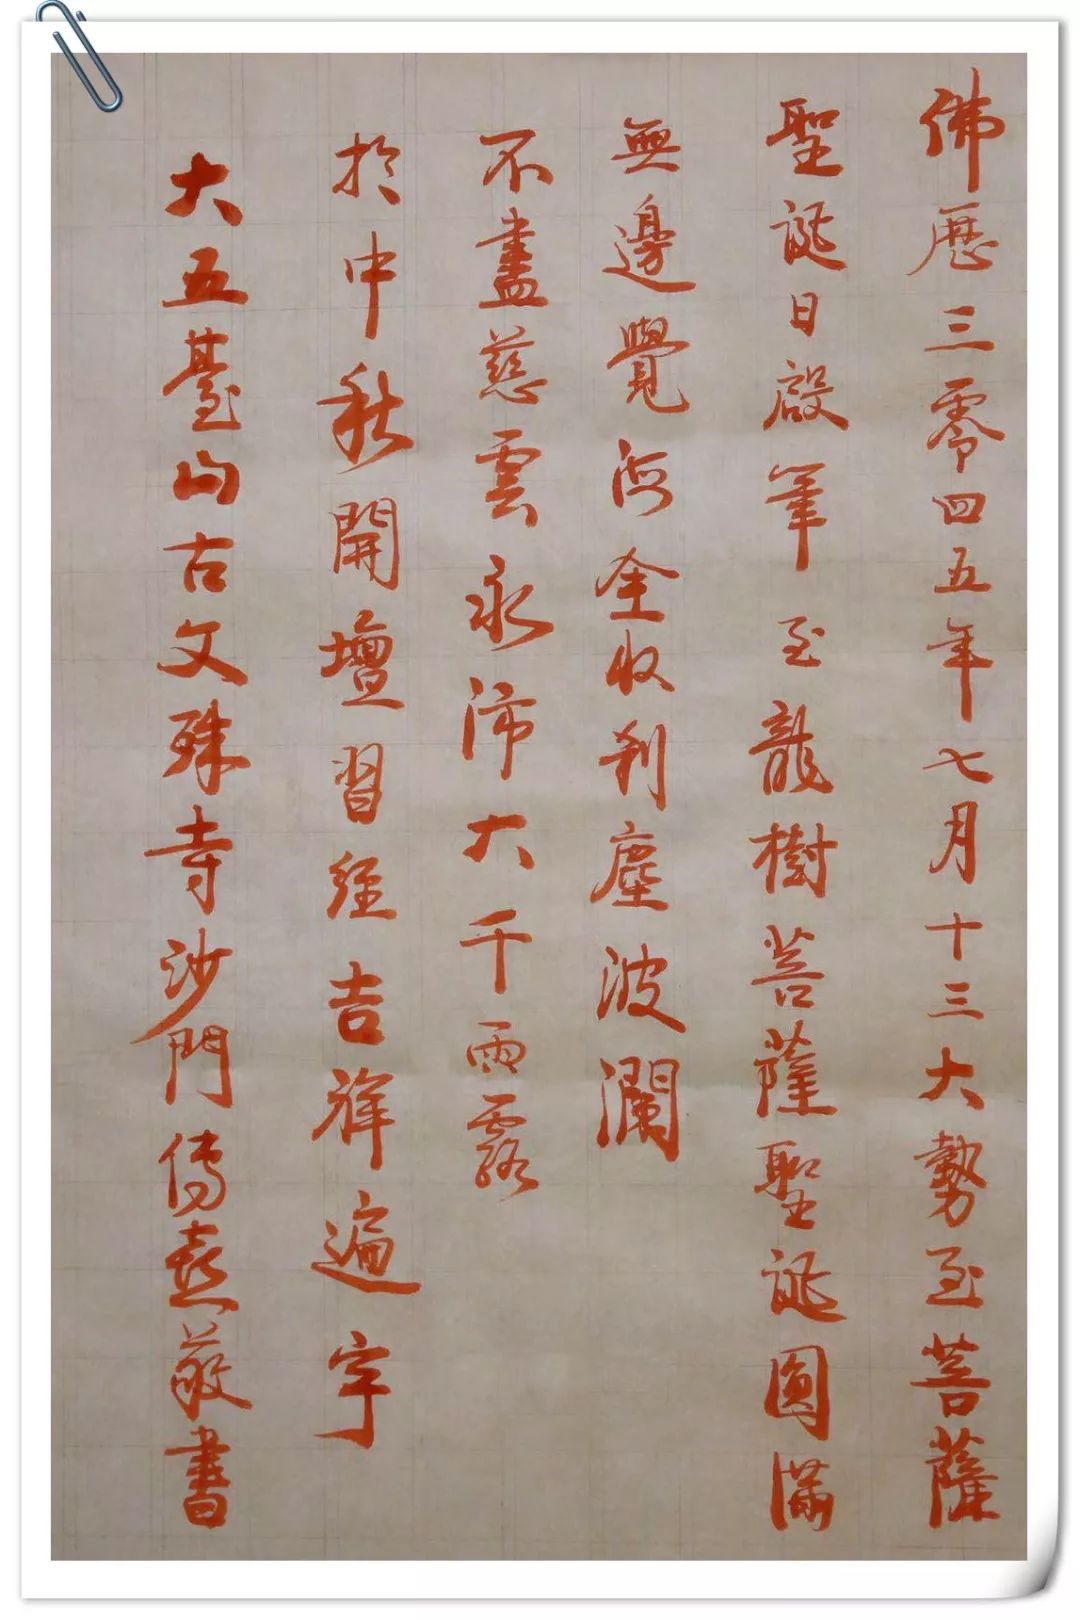 佛歷三零四五年七月十三大勢至菩薩
聖誕日啟筆至龍樹菩薩聖誕圓滿
無邊覺河全收刹塵波瀾
不盡慈雲永沛大千雨露
於中秋開壇習經吉祥遍宇
大五臺山古文殊寺沙門傳熹敬書